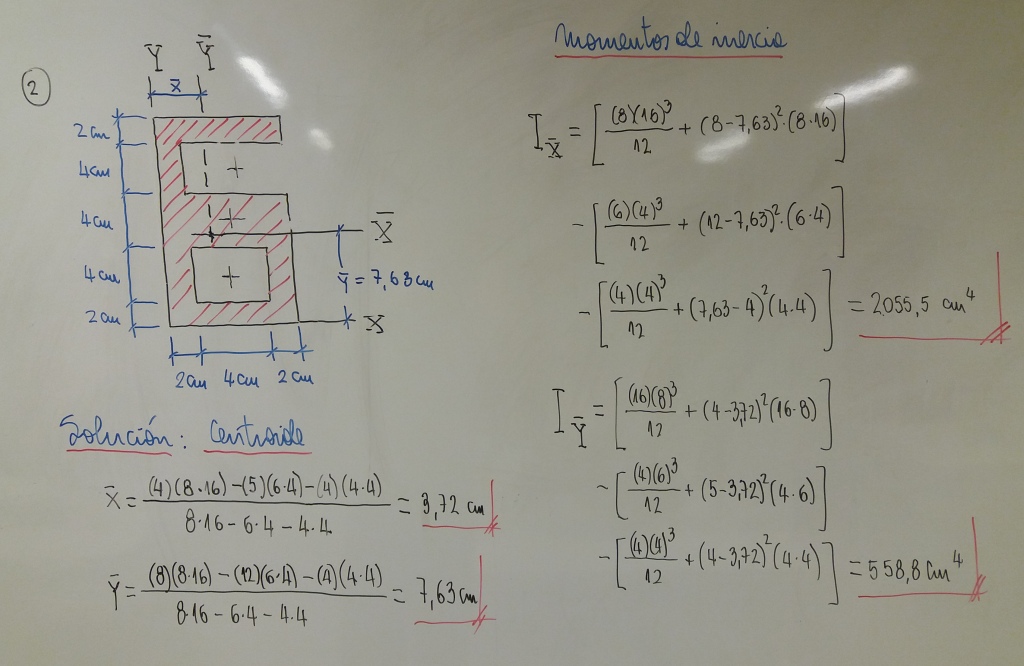 2
Y Ȳ
x̄
2cm
4cm
4cm
4cm
2cm
X̄
ȳ = 7,63cm
X
2cm 4cm 2cm
Solución: Centroide
X̄ = (4)(8·16) - (5)(6·4) - (4)(4·4) / 8·16 - 6·4 - 4·4 = 3,72 cm
Ȳ = (8)(8·16) - (12)(6·4) - (4)(4·4) / 8·16 - 6·4 - 4·4 = 7,63cm
Momentos de inercia
I_X̄ = [ (8)(16)³ / 12 + (8-7,63)²·(8·16) ]
- [ (6)(4)³ / 12 + (12-7,63)²·(6·4) ]
- [ (4)(4)³ / 12 + (7,63-4)²(4·4) ] = 2055,5 cm⁴
I_Ȳ = [ (16)(8)³ / 12 + (4-3,72)²(16·8) ]
- [ (4)(6)³ / 12 + (5-3,72)²(4·6) ]
- [ (4)(4)³ / 12 + (4-3,72)²(4·4) ] = 558,8 cm⁴